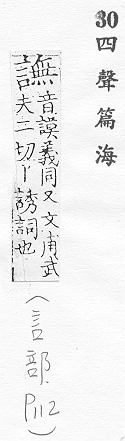 30
四聲篇海
譕
音謨義同又文甫武
夫二切丨誘詞也
(言部.P112)